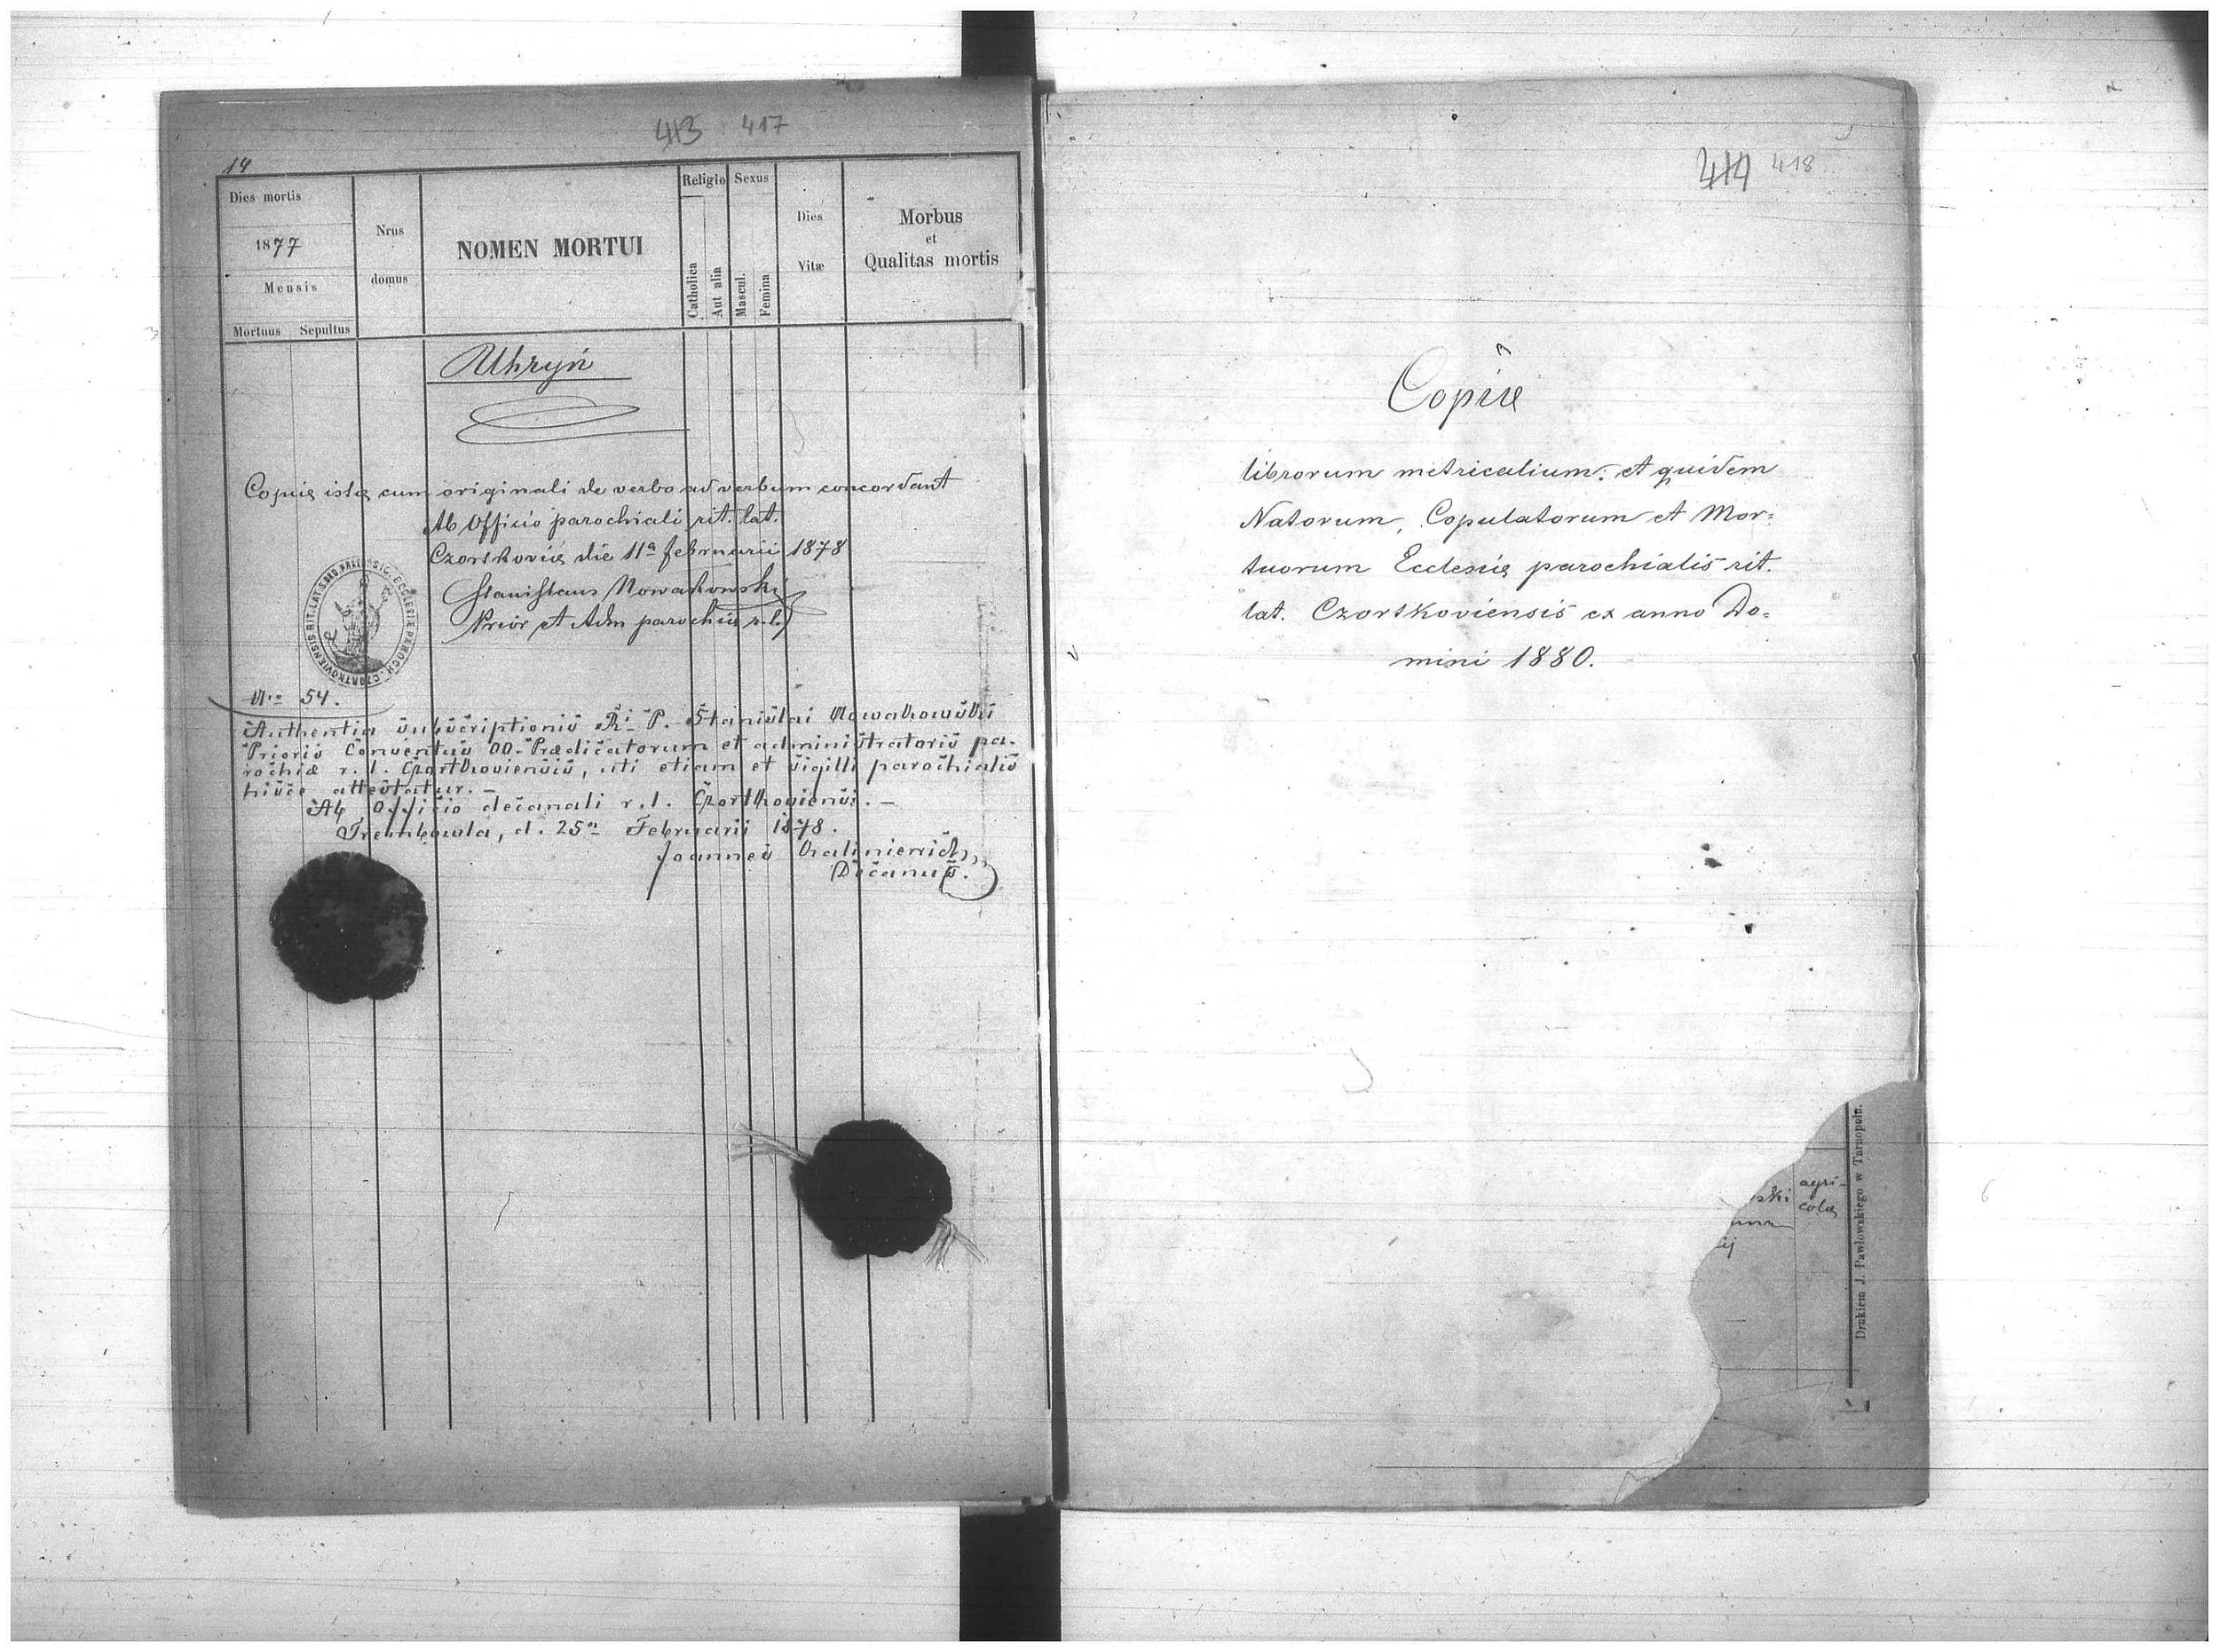 413 417
14
Dies mortis
1877
Mensis
Mortuus Sepultus
Nrus
domus
NOMEN MORTUI
Religio
Catholica
Aut alia
Sexus
Mascul.
Femina
Dies
Vitæ
Morbus
et
Qualitas mortis
Uhryń
Copiæ istæ cum originali de verbo ad verbum concordant
Ab Officio parochiali rit. lat.
Czortkoviæ die 11a februarii 1878
Stanislaus Nowakowski
Prior et Adm parochiæ r.l.
Nro 54.
Authentia subscriptionis Ri P. Stanislai Nowakowski
Prioris Conventus OO. Prædicatorum et administratoris pa-
rochiæ r. l. Czortkoviensis, uti etiam et sigilli parochialis
hisce attestatur. –
Ab Officio decanali r. l. Czortkoviensi. –
Trembowla, d. 25a Februarii 1878.
Joannes
Decanus.
414 418
Copiæ
librorum metricalium: et quidem
Natorum, Copulatorum et Mor=
tuorum Ecclesiæ parochialis rit.
lat. Czortkoviensis ex anno Do=
mini 1880.
ski
agri-
colæ
Drukiem J. Pawłowskiego w Tarnopolu.